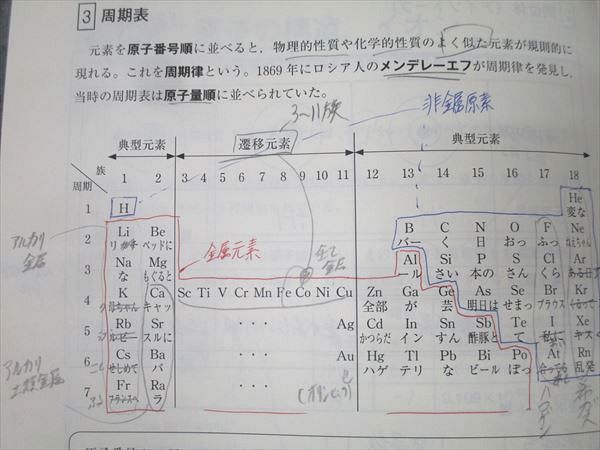 3 周期表
元素を原子番号順に並べると，物理的性質や化学的性質のよく似た元素が規則的に
現れる。これを周期律という。1869年にロシア人のメンデレーエフが周期律を発見し，
当時の周期表は原子量順に並べられていた。
3〜11族 非金属原素
典型元素 遷移元素 典型元素
族 1 2 3 4 5 6 7 8 9 10 11 12 13 14 15 16 17 18
周期
1 H He
変な
2 Li Be B C N O F Ne
リッチ ベッドに バー く 日 おっ ふっ ねえちゃん
アルカリ金属
金属元素
全て金属
3 Na Mg Al Si P S Cl Ar
な もぐると ール さい 本の さん くら ある日
4 K Ca Sc Ti V Cr Mn Fe Co Ni Cu Zn Ga Ge As Se Br Kr
母ちゃん キャッ 全部 が 芸 明日は せまっ ブラウス
5 Rb Sr ・・・ Ag Cd In Sn Sb Te I Xe
ルビー スルに かつらだ イン すん 酢豚と て 私に キス
6 Cs Ba ・・・ Au Hg Tl Pb Bi Po At Rn
せしめて バ ハゲ テリ な ビール ぽっ 乱発
アルカリ土類金属
7 Fr Ra ・・・
フランスへ ラ
ハロゲン
希ガス